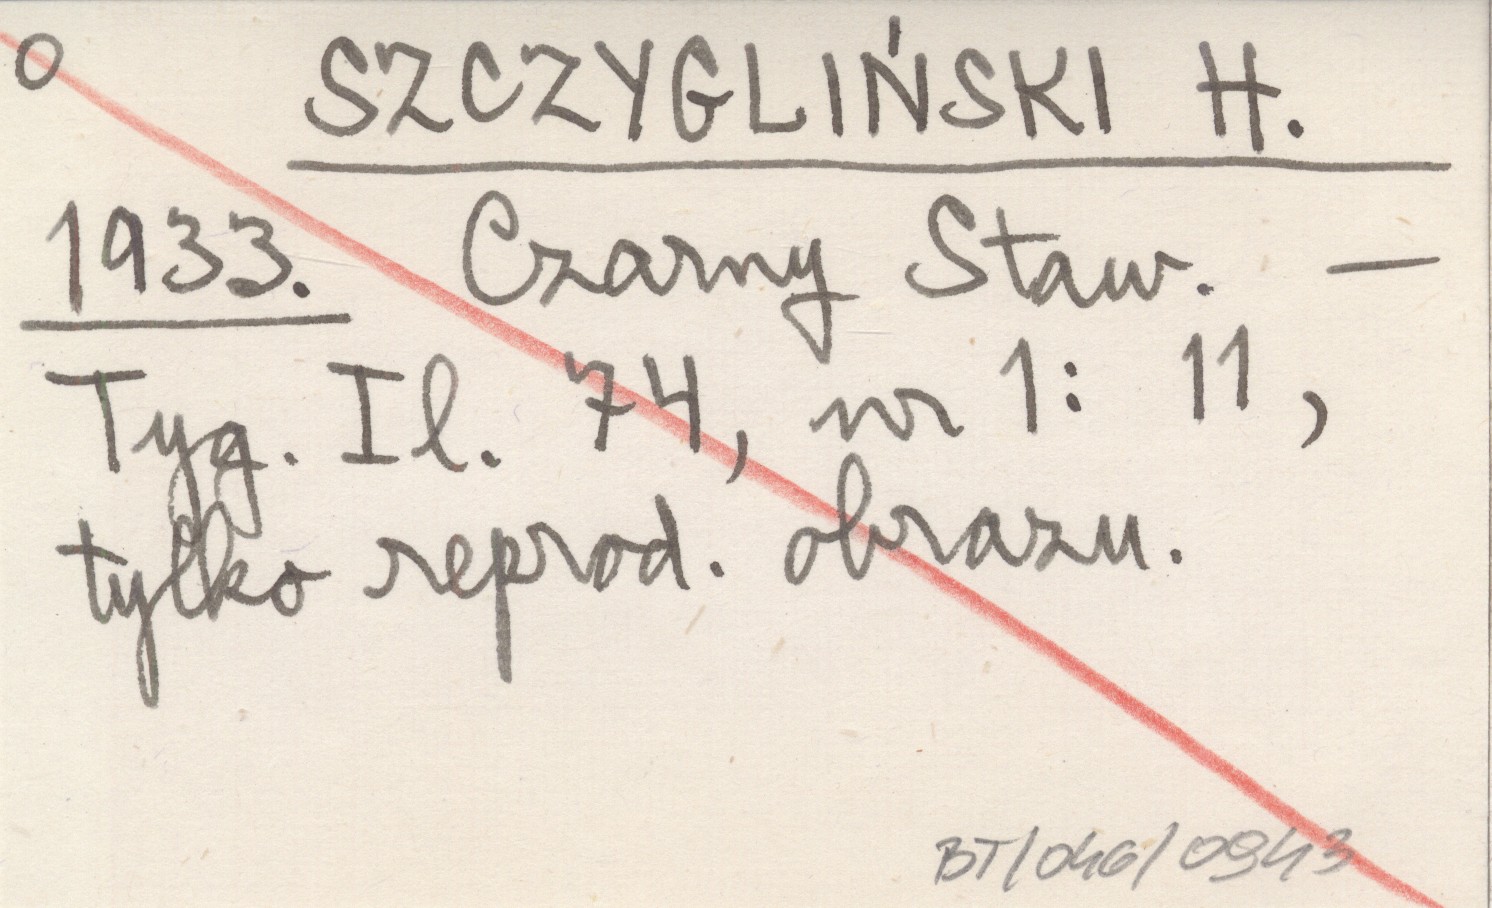 O SZCZYGLIŃSKI H.
1933. Czarny Staw. —
Tyg. Il. 74, nr 1: 11,
tylko reprod. obrazu.
BT/046/0943